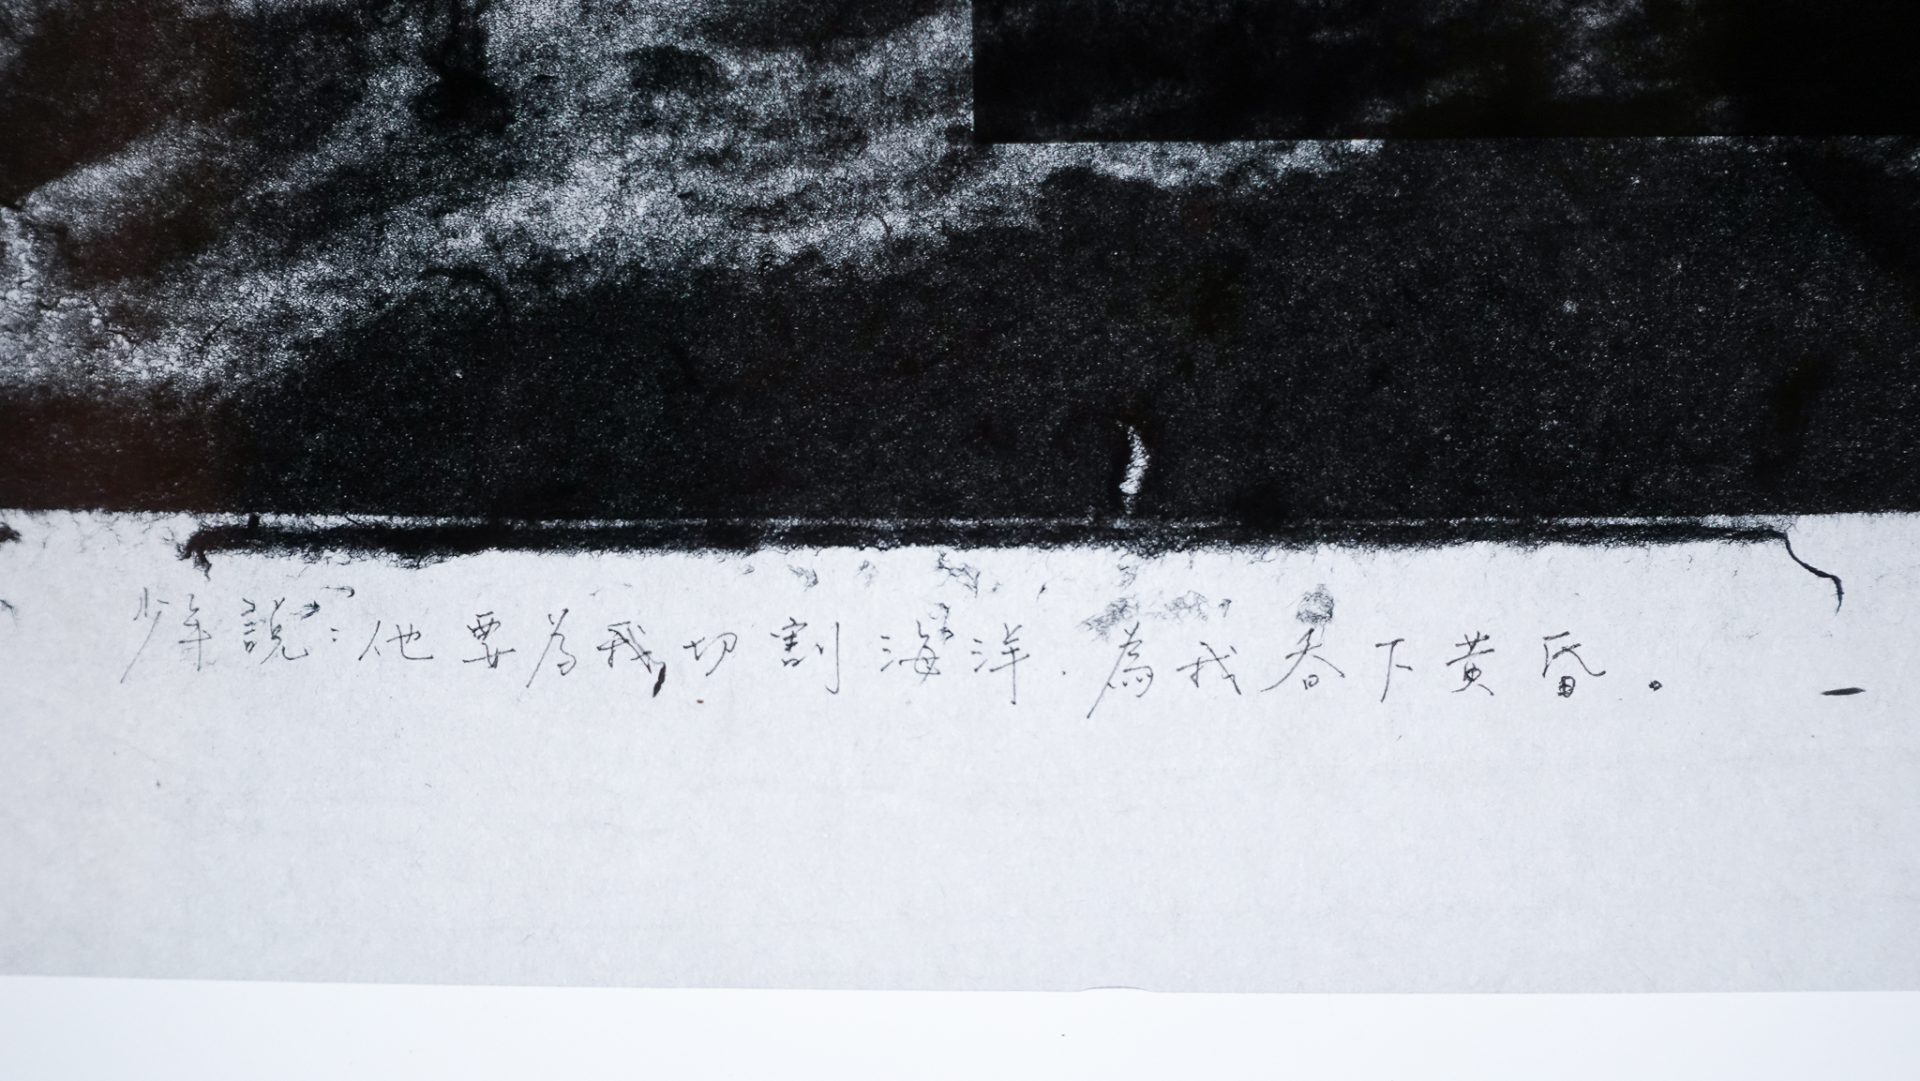 少年說：他要為我切割海洋．為我吞下黃昏。